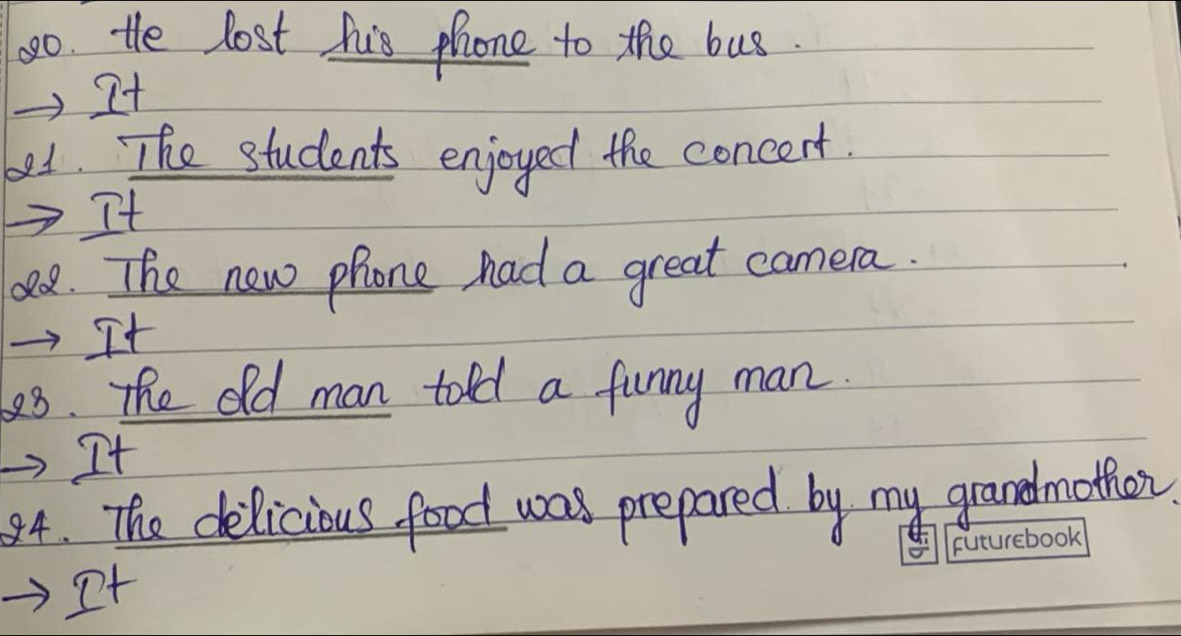 20. He lost his phone to the bus.
→ It
21. The students enjoyed the concert.
→ It
22. The new phone had a great camera.
→ It
23. The old man told a funny man.
→ It
24. The delicious food was prepared by my grandmother.
FUTUREBOOK
→ It